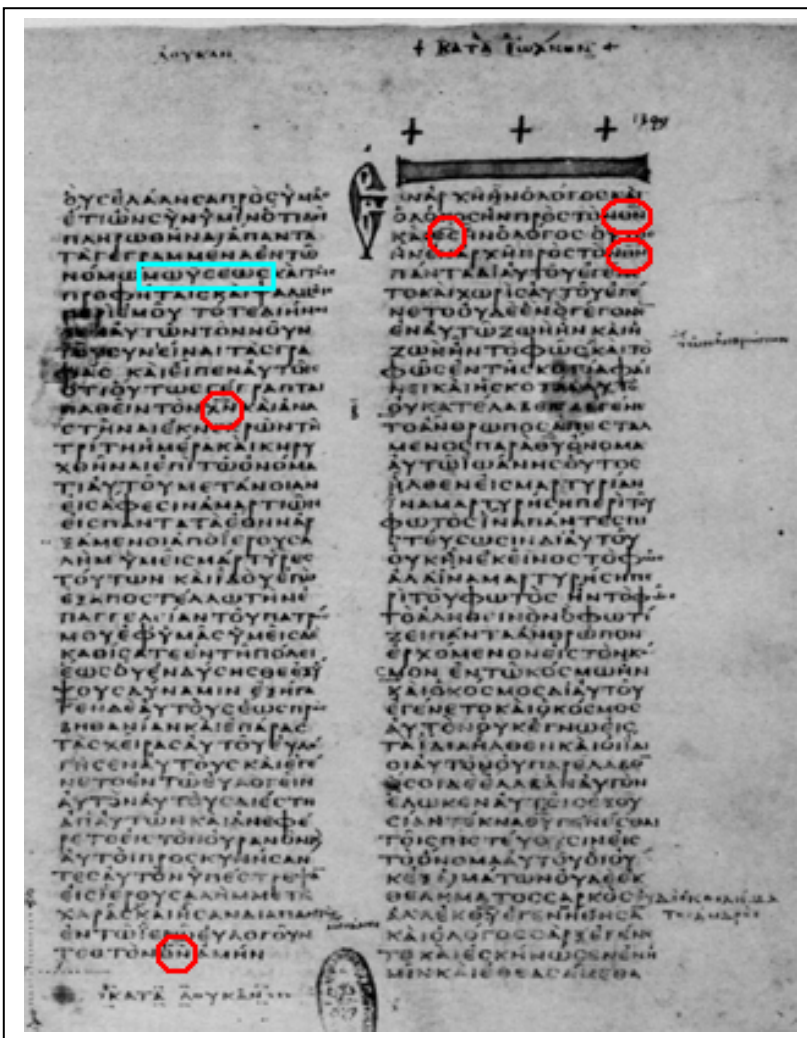 ΛΟΥΚΑΝ
ΟΥϹΕΛΑΛΗϹΑΠΡΟϹΥΜΑϹ
ΕΤΙΩΝϹΥΝΥΜΙΝΟΤΙΔΕΙ
ΠΛΗΡΩΘΗΝΑΙΑΠΑΝΤΑ
ΤΑΓΕΓΡΑΜΜΕΝΑΕΝΤΩ
ΝΟΜΩΜΩΥϹΕΩϹΚΑΙΤΟΙϹ
ΠΡΟΦΗΤΑΙϹΚΑΙΨΑΛΜΟΙϹ
ΠΕΡΙΕΜΟΥ ΤΟΤΕΔΙΗΝΟΙ
ΞΕΝΑΥΤΩΝΤΟΝΝΟΥΝ
ΤΟΥϹΥΝΕΙΝΑΙΤΑϹΓΡΑ
ΦΑϹ ΚΑΙΕΙΠΕΝΑΥΤΟΙϹ
ΟΤΙΟΥΤΩϹΓΕΓΡΑΠΤΑΙ
ΠΑΘΕΙΝΤΟΝΧΝΚΑΙΑΝΑ
ϹΤΗΝΑΙΕΚΝΕΚΡΩΝΤΗ
ΤΡΙΤΗΗΜΕΡΑΚΑΙΚΗΡΥ
ΧΘΗΝΑΙΕΠΙΤΩΟΝΟΜΑ
ΤΙΑΥΤΟΥΜΕΤΑΝΟΙΑΝ
ΕΙϹΑΦΕϹΙΝΑΜΑΡΤΙΩΝ
ΕΙϹΠΑΝΤΑΤΑΕΘΝΗΑΡ
ΞΑΜΕΝΟΙΑΠΟΙΕΡΟΥϹΑ
ΛΗΜ ΥΜΕΙϹΜΑΡΤΥΡΕϹ
ΤΟΥΤΩΝ ΚΑΙΙΔΟΥΕΓΩ
ΕΞΑΠΟϹΤΕΛΛΩΤΗΝΕ
ΠΑΓΓΕΛΙΑΝΤΟΥΠΑΤΡΟϹ
ΜΟΥΕΦΥΜΑϹΥΜΕΙϹΔΕ
ΚΑΘΙϹΑΤΕΕΝΤΗΠΟΛΕΙ
ΕΩϹΟΥΕΝΔΥϹΗϹΘΕΕΞΥ
ΨΟΥϹΔΥΝΑΜΙΝ ΕΞΗΓΑ
ΓΕΝΔΕΑΥΤΟΥϹΕΩϹΠΡΟϹ
ΒΗΘΑΝΙΑΝΚΑΙΕΠΑΡΑϹ
ΤΑϹΧΕΙΡΑϹΑΥΤΟΥΕΥΛΟ
ΓΗϹΕΝΑΥΤΟΥϹΚΑΙΕΓΕ
ΝΕΤΟΕΝΤΩΕΥΛΟΓΕΙΝ
ΑΥΤΟΝΑΥΤΟΥϹΔΙΕϹΤΗ
ΑΠΑΥΤΩΝΚΑΙΑΝΕΦΕ
ΡΕΤΟΕΙϹΤΟΝΟΥΡΑΝΟΝΚ
ΑΥΤΟΙΠΡΟϹΚΥΝΗϹΑΝ
ΤΕϹΑΥΤΟΝΥΠΕϹΤΡΕΨΑ
ΕΙϹΙΕΡΟΥϹΑΛΗΜΜΕΤΑ
ΧΑΡΑϹ
ΕΥΛΟΓΟΥΝ
ΤΕϹΤΟΝΘΝ ΑΜΗΝ
ΚΑΤΑ ΛΟΥΚΑΝ
+ ΚΑΤΑ ΙΩΑΝΝΗΝ +
ΕΝΑΡΧΗΗΝΟΛΟΓΟϹΚΑΙ
ΟΛΟΓΟϹΗΝΠΡΟϹΤΟΝΘΝ
ΚΑΙΘϹΗΝΟΛΟΓΟϹ ΟΥΤΟϹ
ΗΝΕΝΑΡΧΗΠΡΟϹΤΟΝΘΝ
ΠΑΝΤΑΔΙΑΥΤΟΥΕΓΕΝΕ
ΤΟΚΑΙΧΩΡΙϹΑΥΤΟΥΕΓΕ
ΝΕΤΟΟΥΔΕΕΝΟΓΕΓΟΝΕ
ΕΝΑΥΤΩΖΩΗΗΝΚΑΙΗ
ΖΩΗΗΝΤΟΦΩϹ ΚΑΙΤΟ
ΦΩϹΕΝΤΗϹΚΟΤΙΑΦΑΙ
ΝΕΙΚΑΙΗϹΚΟΤΙΑΑΥΤΟ
ΟΥΚΑΤΕΛΑΒΕΝ ΕΓΕΝΕ
ΤΟΑΝΘΡΩΠΟϹΑΠΕϹΤΑΛ
ΜΕΝΟϹΠΑΡΑΘΥΟΝΟΜΑ
ΑΥΤΩΙΩΑΝΗϹΟΥΤΟϹ
ΗΛΘΕΝΕΙϹΜΑΡΤΥΡΙΑΝ
ΙΝΑΜΑΡΤΥΡΗϹΗΠΕΡΙΤΟΥ
ΦΩΤΟϹΙΝΑΠΑΝΤΕϹΠΙ
ϹΤΕΥϹΩϹΙΝΔΙΑΥΤΟΥ
ΟΥΚΗΝΕΚΕΙΝΟϹΤΟΦΩϹ
ΑΛΛΑΙΝΑΜΑΡΤΥΡΗϹΗΠΕ
ΡΙΤΟΥΦΩΤΟϹ ΗΝΤΟΦΩϹ
ΤΟΑΛΗΘΕΙΝΟΝΟΦΩΤΙ
ΖΕΙΠΑΝΤΑΑΝΘΡΩΠΟΝ
ΕΡΧΟΜΕΝΟΝΕΙϹΤΟΝΚΟ
ϹΜΟΝ ΕΝΤΩΚΟϹΜΩΗΝ
ΚΑΙΟΚΟϹΜΟϹΔΙΑΥΤΟΥ
ΕΓΕΝΕΤΟΚΑΙΟΚΟϹΜΟϹ
ΑΥΤΟΝΟΥΚΕΓΝΩΕΙϹ
ΤΑΙΔΙΑΗΛΘΕΝΚΑΙΟΙΙΔΙ
ΟΙΑΥΤΟΝΟΥΠΑΡΕΛΑΒΟΝ
ΟϹΟΙΔΕΕΛΑΒΑΝΑΥΤΟΝ
ΕΔΩΚΕΝΑΥΤΟΙϹΕΞΟΥ
ϹΙΑΝΤΕΚΝΑΘΥΓΕΝΕϹΘΑΙ
ΤΟΙϹΠΙϹΤΕΥΟΥϹΙΝΕΙϹ
ΤΟΟΝΟΜΑΑΥΤΟΥΟΙΟΥ
ΚΕΞΑΙΜΑΤΩΝΟΥΔΕΕΚ
ΘΕΛΗΜΑΤΟϹϹΑΡΚΟϹ
ΑΛΛΕΚΘΥΕΓΕΝΝΗΘΗϹΑ
ΚΑΙΟΛΟΓΟϹϹΑΡΞΕΓΕΝΕ
ΤΟ ΚΑΙΕϹΚΗΝΩϹΕΝΕΝΗ
ΜΙΝ ΚΑΙΕΘΕΑϹΑΜΕΘΑ